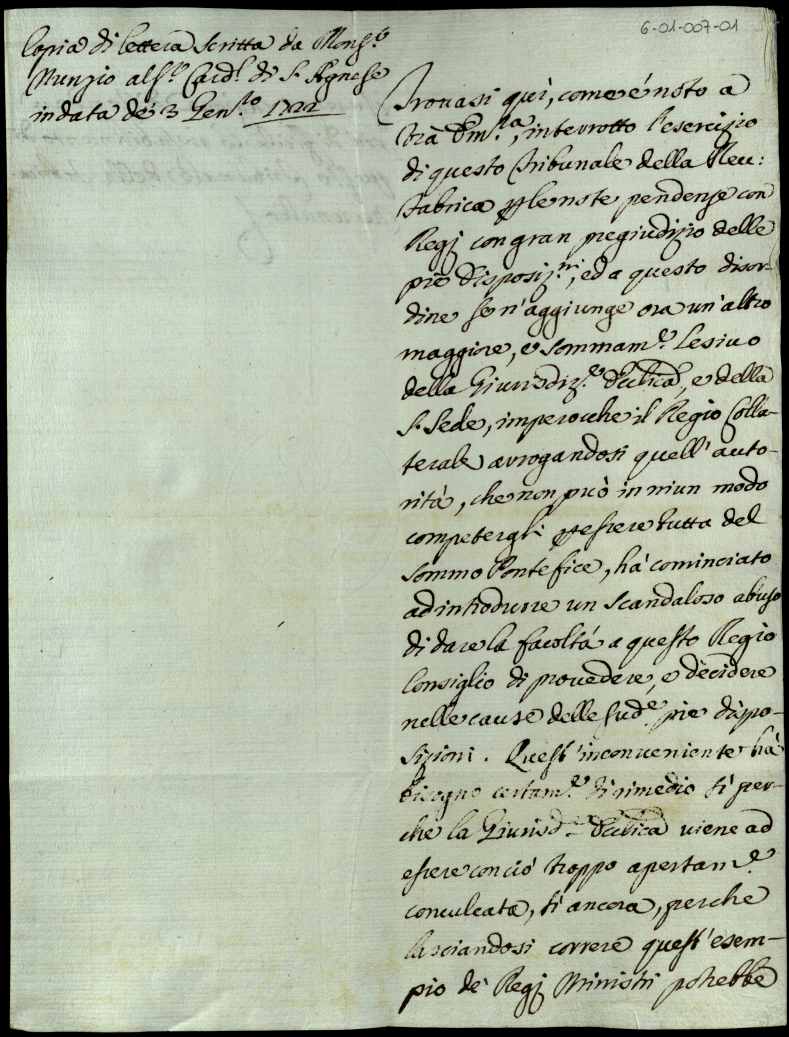 6-01-007-01
Copia di lettera scritta da Mons.r
Nunzio all' Card.l di S. Agnese
in data de' 3 Gen.ro 1722
Trovasi quì, come é noto a
Vrã Em.za, interrotto l'esercizio
di questo Tribunale della Reu:
Fabrica per le note pendenze con
Regj con gran pregiudizio delle
pie disposiz.ni, ed a questo disor-
dine se n'aggiunge ora un'altro
maggiore, e sommam.e lesivo
della Giurisdiz.e Ecclicã, e della
S. Sede, imperocche il Regio Colla-
terale arrogandosi quell'auto-
rità, che non può in niun modo
competergli per essere tutta del
Sommo Pontefice, há cominciato
ad introdurre un scandaloso abuso
di dare la facoltá a questo Regio
Consiglio di provedere, e decidere
nelle cause delle sud.e pie dispo-
sizioni. Quest'inconveniente há
bisogno certam.e di rimedio sì per-
che la Giurisd.ne Ecclicã viene ad
essere con ció troppo apertam.e
conculcata, sì ancora, perche
lasciandosi correre quest'esem-
pio de' Regj Ministri potrebbe